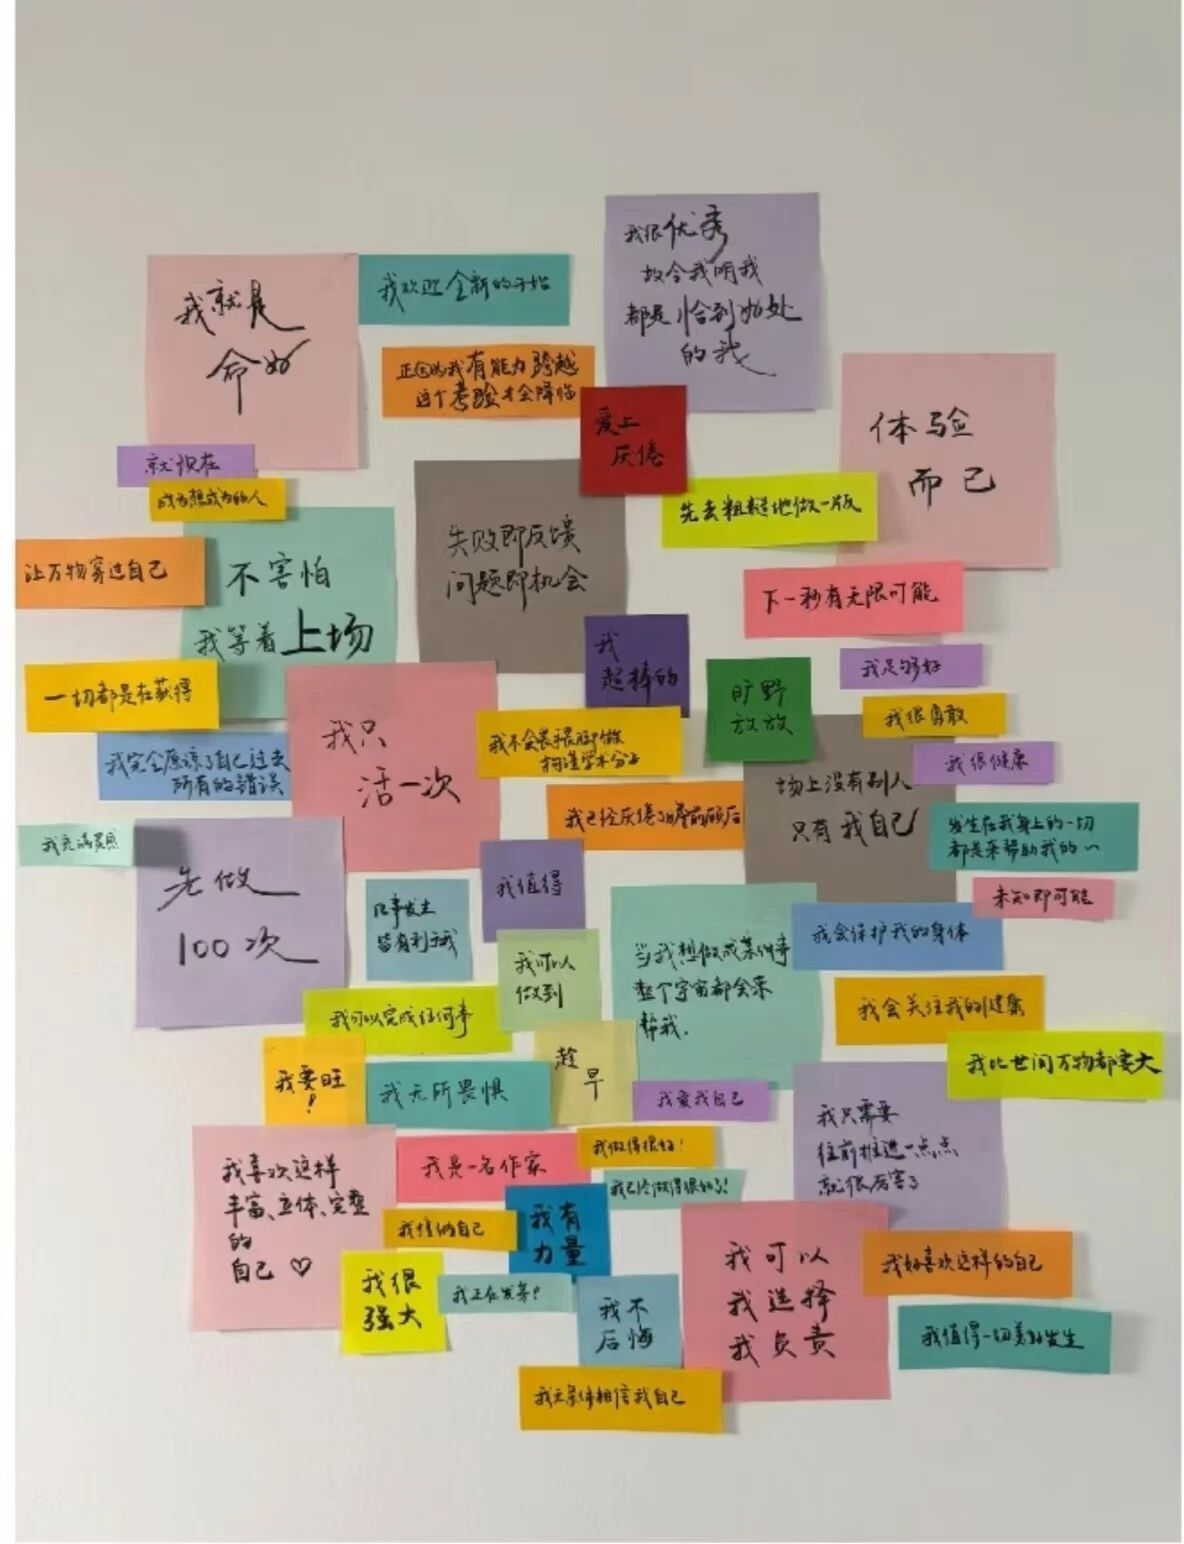 我很优秀
故令我明我
都是恰到好处
的我
我就是
命好
我欢迎全新的开始
正因为我有能力跨越
这个考验才会降临
爱上
厌倦
体验
而已
就现在
成为想成为的人
失败即反馈
问题即机会
先去粗糙地做一版
让万物穿过自己
不害怕
我等着上场
下一秒有无限可能
我
超棒的
旷野
放放
我足够好
我很勇敢
我很健康
一切都是在获得
我完全原谅了自己过去
所有的错误
我只
活一次
我不会畏手畏脚做
构造学术分子
我已经厌倦了瞻前顾后
场上没有别人
只有我自己
发生在我身上的一切
都是来帮助我的～
未知即可能
我充满灵感
先做
100次
凡事发生
皆有利于我
我值得
我可以
做到
当我想做成某件事
整个宇宙都会来
帮我.
我会保护我的身体
我会关注我的健康
我比世间万物都要大
我可以完成任何事
我要旺
!
我无所畏惧
趁
早
我爱我自己
我只需要
往前推进一点点
就很厉害了
我喜欢这样
丰富、立体、完整
的
自己♡
我是一名作家
我做得很好!
我已经做得很好了!
我有
力量
我很
强大
我正在发芽!
我不
后悔
我可以
我选择
我负责
我好喜欢这样的自己
我值得一切美好发生
我无条件相信我自己